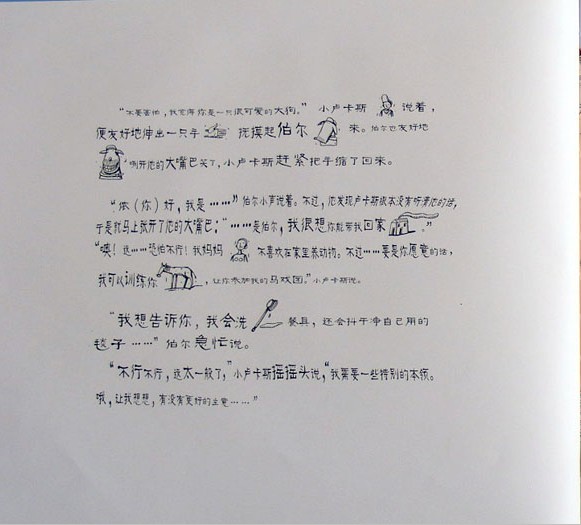 “不要害怕，我觉得你是一只很可爱的大狗。” 小卢卡斯 说着，
便友好地伸出一只手 抚摸起伯尔 来。伯尔也友好地
咧开他的大嘴巴笑了，小卢卡斯赶紧把手缩了回来。
“侬（你）好，我是……”伯尔小声说着。不过，他发现卢卡斯根本没有听清他的话，
于是就马上就开了他的大嘴巴：“……是伯尔，我很想你能带我回家 。”
“噢！这……恐怕不行！我妈妈 不喜欢在家里养动物。不过……要是你愿意的话，
我可以训练你 ，让你参加我的马戏团。”小卢卡斯说。
“我想告诉你，我会洗 餐具，还会抖干净自己用的
毯子……”伯尔急忙说。
“不行不行，这太一般了，”小卢卡斯摇摇头说，“我需要一些特别的本领。
哦，让我想想，有没有更好的主意……”